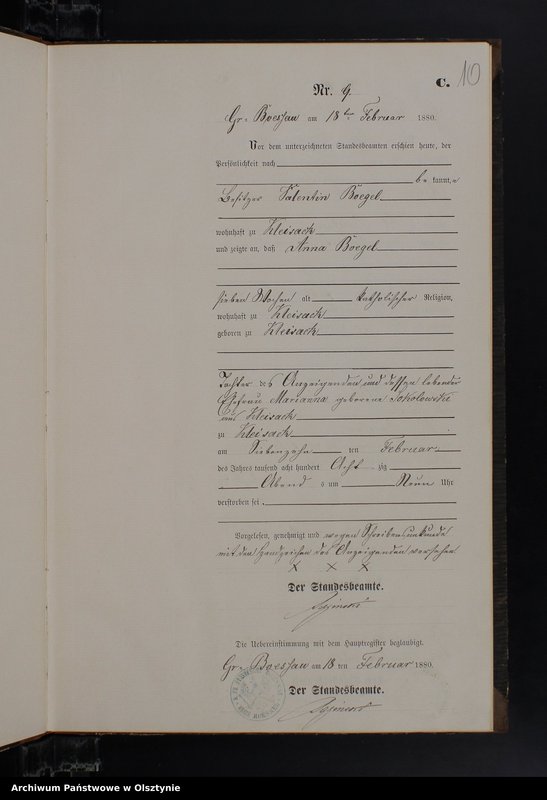 C.
10
Nr. 9
Gr. Boessau am 18ten Februar 1880.
Vor dem unterzeichneten Standesbeamten erschien heute, der
Persönlichkeit nach
be kannt, e
Besitzer Valentin Boegel
wohnhaft zu Kleisack
und zeigte an, daß Anna Boegel
sieben Wochen alt katholischer Religion,
wohnhaft zu Kleisack
geboren zu Kleisack
Tochter des Anzeigenden und dessen lebender
Ehefrau Marianna geborene Sokolowski
aus Kleisack
zu Kleisack
am Siebenzehn ten Februar
des Jahres tausend acht hundert Acht zig
Abend s um Neun Uhr
verstorben sei.
Vorgelesen, genehmigt und wegen Schreibensunkunde
mit den Handzeichen des Anzeigenden versehen
X X X
Der Standesbeamte.
Die Uebereinstimmung mit dem Hauptregister beglaubigt.
Gr. Boessau am 18 ten Februar 1880.
Der Standesbeamte.
Archiwum Państwowe w Olsztynie